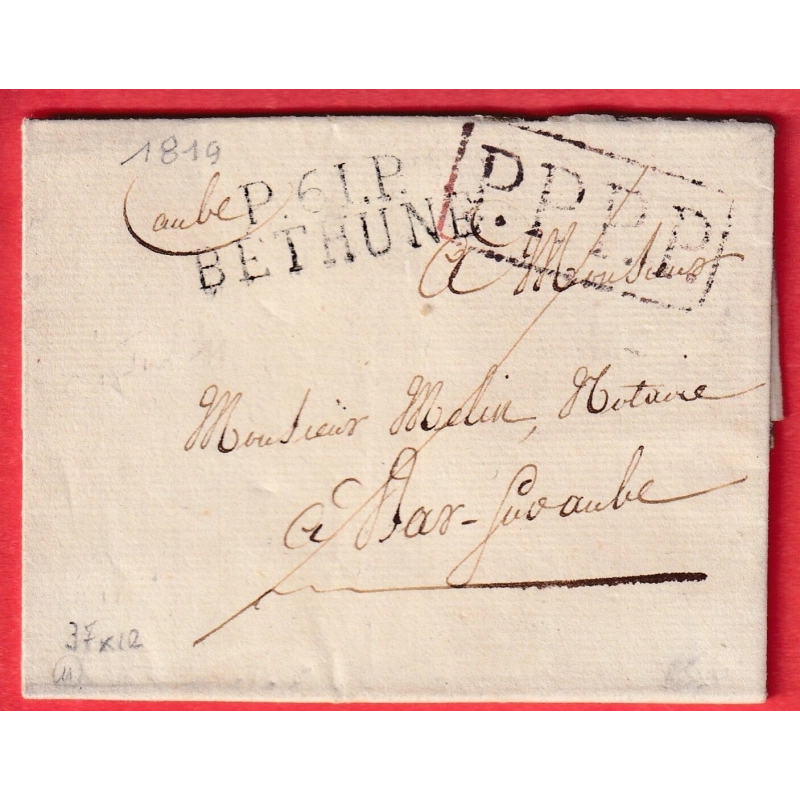 1819
aube
P.61.P.
BETHUNE
P.P.P.P.
à Monsieur
Monsieur Melin, Notaire
à Bar-Suraube
37x12
11